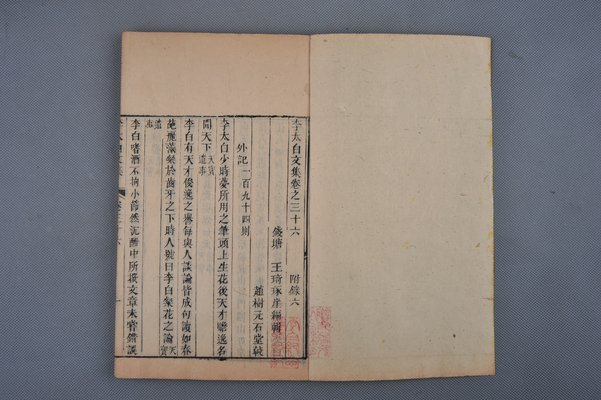 李太白文集卷之三十六 附錄六
錢塘 王琦琢崖編輯
趙樹元石堂較
外記一百九十四則
李太白少時夢所用之筆頭上生花後天才贍逸名
聞天下天寶遺事
李白有天才俊逸之譽每與人談論皆成句讀如春
葩麗藻粲於齒牙之下時人號曰李白粲花之論天寶
遺事
李白嗜酒不拘小節然沉酣中所撰文章未嘗錯誤
李太白文集